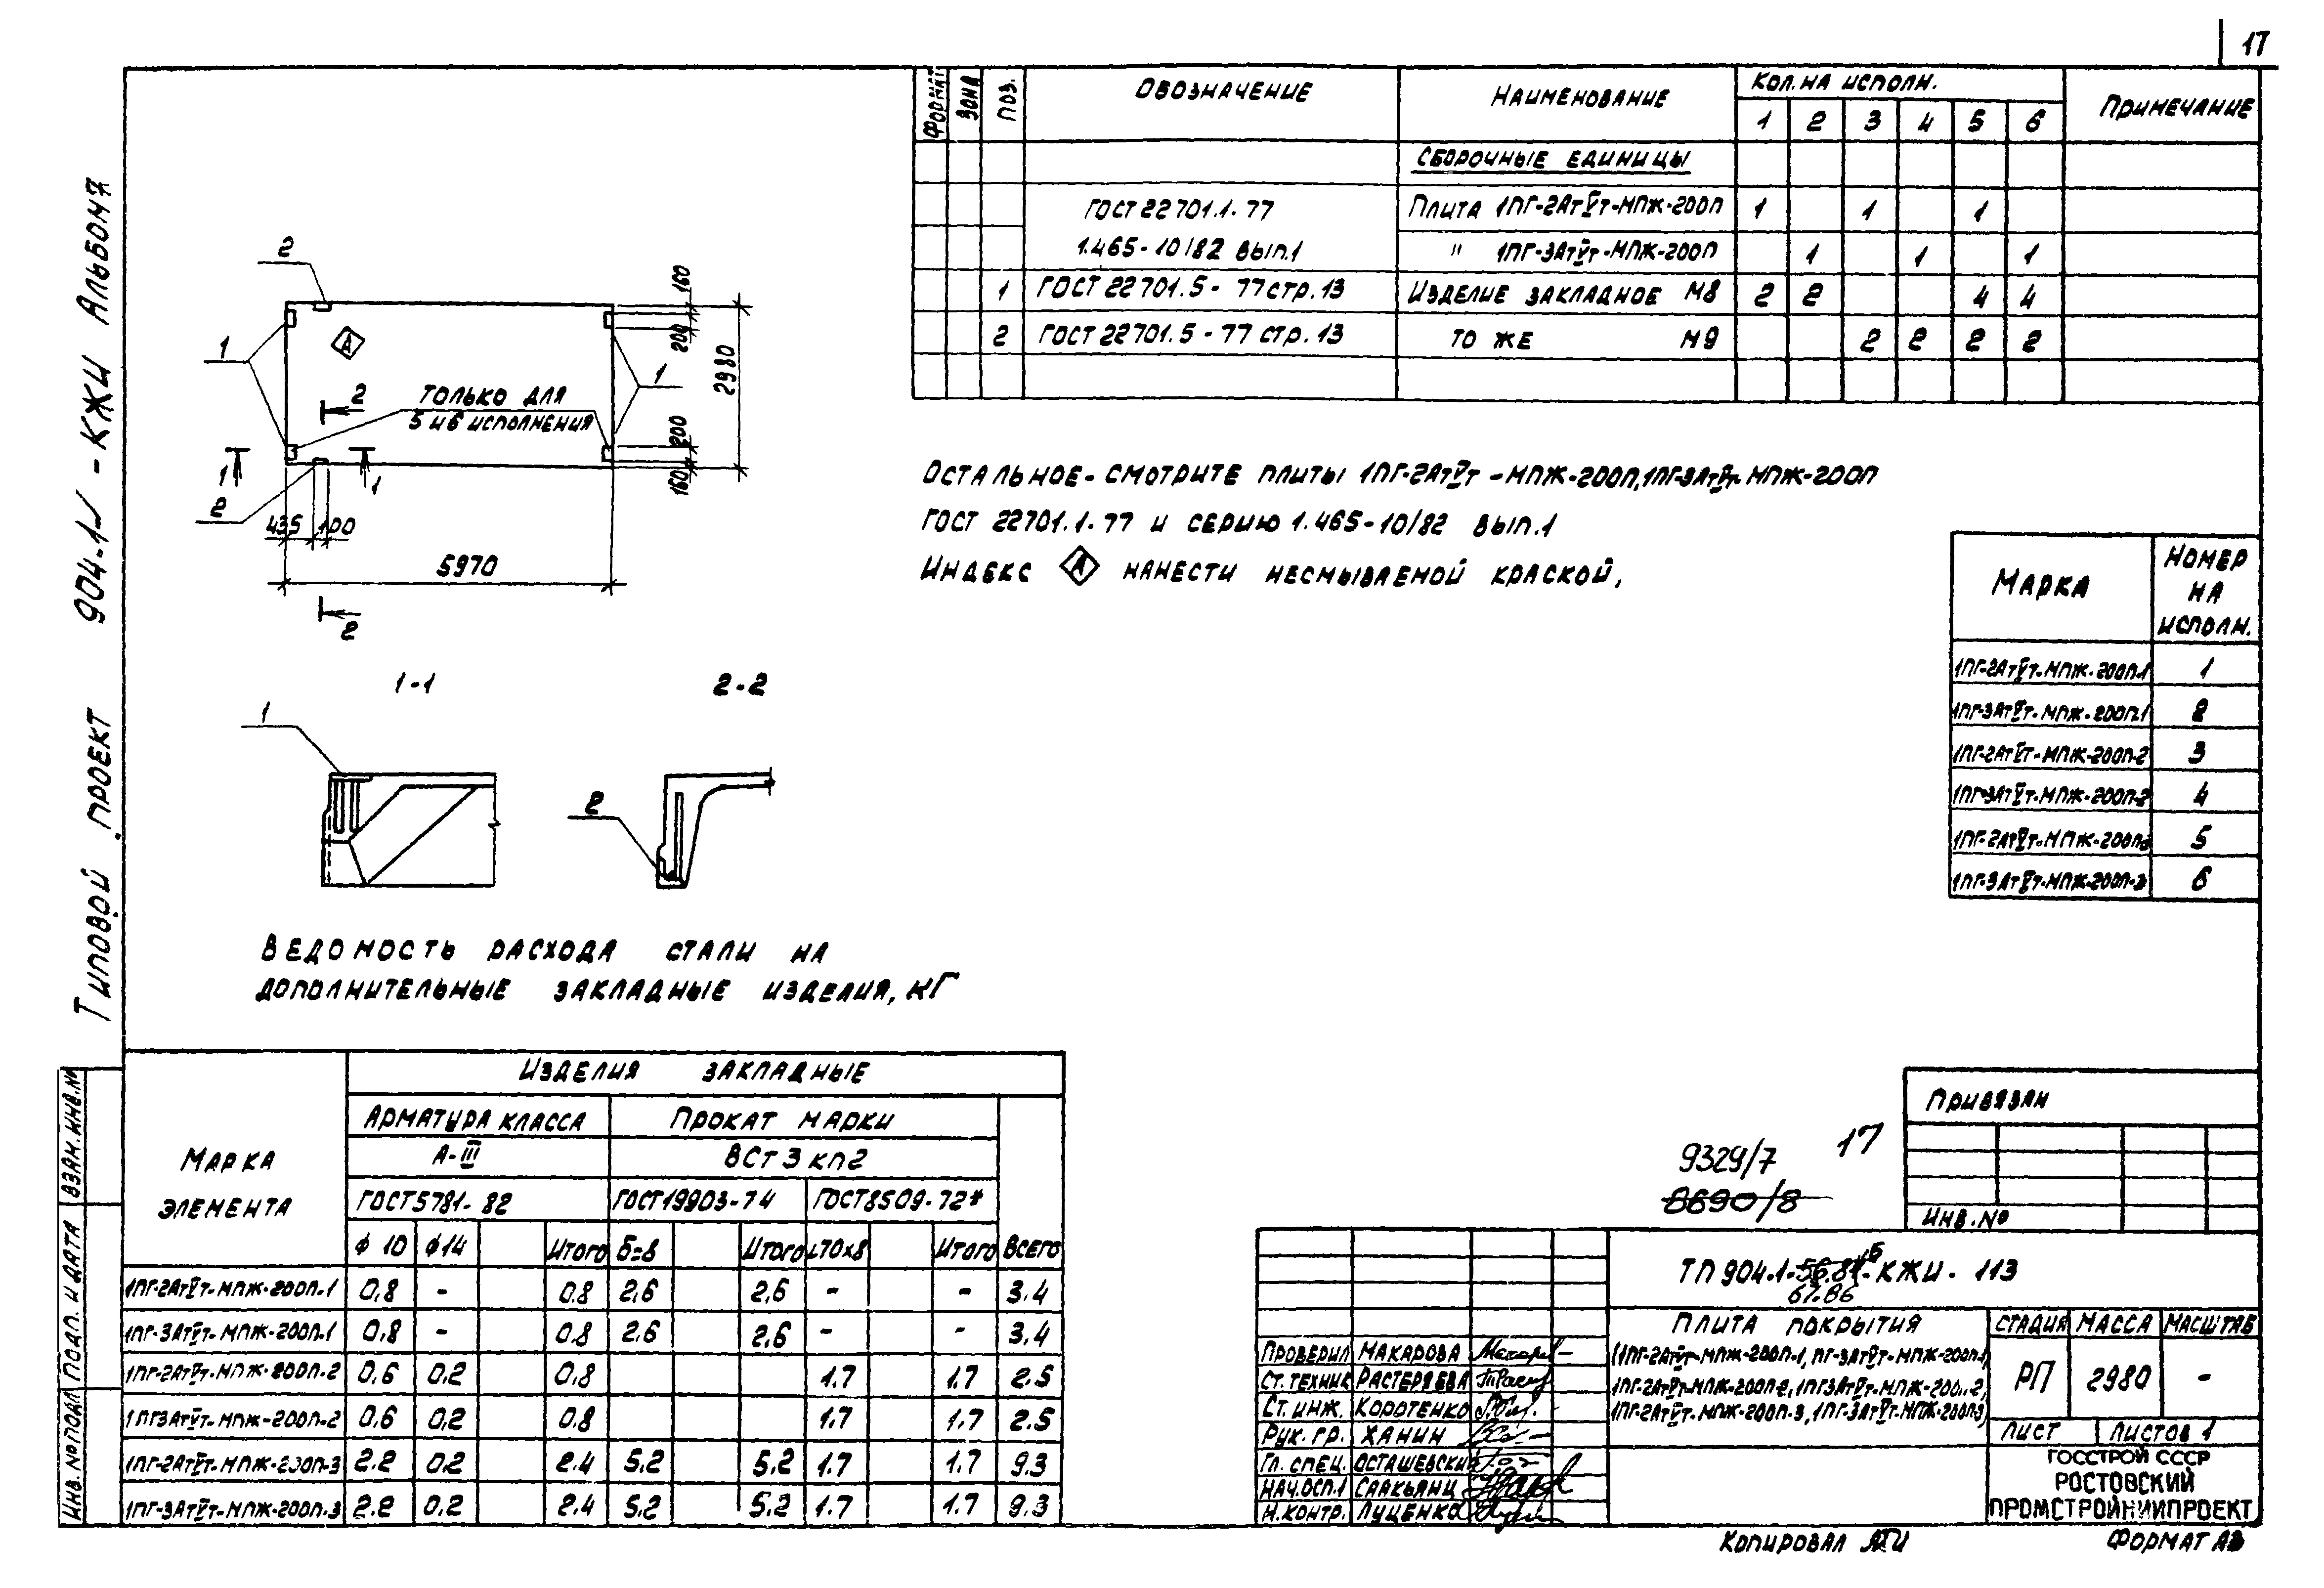 17
Типовой проект 904-1 -КЖИ Альбом 7
Формат
Зона
Поз.
Обозначение
Наименование
Кол. на исполн.
Примечание
1 2 3 4 5 6
Сборочные единицы
ГОСТ 22701.1-77 Плита 1ПГ-2АтⅤт-МПЖ-200П 1 1 1
1.465-10/82 вып.1 " 1ПГ-3АтⅤт-МПЖ-200П 1 1 1
1 ГОСТ 22701.5-77 стр.13 Изделие закладное М8 2 2 4 4
2 ГОСТ 22701.5-77 стр.13 То же М9 2 2 2 2
2
1
А
2
только для
5 и 6 исполнения
1
1
1
2
435 100
5970
2
160
200
2980
200
160
1-1
2-2
1
2
Остальное - смотрите плиты 1ПГ-2АтⅤт-МПЖ-200П, 1ПГ-3АтⅤт-МПЖ-200П
ГОСТ 22701.1-77 и серию 1.465-10/82 вып.1
Индекс А нанести несмываемой краской.
Марка
Номер
на
исполн.
1ПГ-2АтⅤт-МПЖ-200П-1 1
1ПГ-3АтⅤт-МПЖ-200П-1 2
1ПГ-2АтⅤт-МПЖ-200П-2 3
1ПГ-3АтⅤт-МПЖ-200П-2 4
1ПГ-2АтⅤт-МПЖ-200П-3 5
1ПГ-3АтⅤт-МПЖ-200П-3 6
Ведомость расхода стали на
дополнительные закладные изделия, кг
Марка
элемента
Изделия закладные
Арматура класса
Прокат марки
А-Ⅲ
ВСт3кп2
ГОСТ 5781-82
ГОСТ 19903-74
ГОСТ 8509-72*
ф 10 ф 14 Итого δ=8 Итого ∟70х8 Итого Всего
1ПГ-2АтⅤт-МПЖ-200П-1 0,8 - 0.8 2,6 2,6 - - 3.4
1ПГ-3АтⅤт-МПЖ-200П-1 0,8 - 0.8 2.6 2.6 - - 3.4
1ПГ-2АтⅤт-МПЖ-200П-2 0,6 0,2 0.8 1.7 1.7 2.5
1ПГ3АтⅤт-МПЖ-200П-2 0.6 0,2 0.8 1.7 1.7 2.5
1ПГ-2АтⅤт-МПЖ-200П-3 2.2 0.2 2.4 5.2 5.2 1.7 1.7 9.3
1ПГ-3АтⅤт-МПЖ-200П-3 2.2 0.2 2.4 5.2 5.2 1.7 1.7 9.3
Взам.инв.№
Подп. и дата
Инв.№подл
9329/7 17
8690/8
Привязан
Инв.№
ТП 904-1-56.81-КЖИ-113
67.86
Плита покрытия
(1ПГ-2АтⅤт-МПЖ-200П-1, ПГ-3АтⅤт-МПЖ-200П-1
1ПГ-2АтⅤт-МПЖ-200П-2, 1ПГ3АтⅤт-МПЖ-200П-2,
1ПГ-2АтⅤт-МПЖ-200П-3, 1ПГ-3АтⅤт-МПЖ-200П-3)
Стадия Масса Масштаб
РП 2980 -
Лист Листов 1
Госстрой СССР
Ростовский
Промстройниипроект
Проверил Макарова
Ст.техник Растеряева
Ст. инж. Коротенко
Рук. гр. Ханин
Гл. спец. Осташевский
Нач.осп.1 Саакьянц
Н.контр. Луценко
Копировал
Формат А3